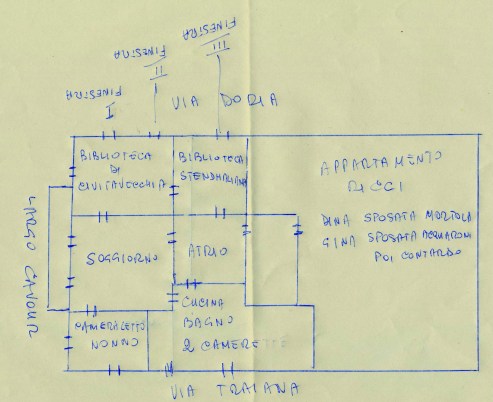 FINESTRA
I
FINESTRA
II
FINESTRA
III
VIA DORIA
BIBLIOTECA
DI
CIVITAVECCHIA
BIBLIOTECA
STENDHALIANA
APPARTAMENTO
RICCI
DINA SPOSATA MORTOLA
GINA SPOSATA ACQUARONI
POI CONTARDO
LARGO CAVOUR
SOGGIORNO
ATRIO
CAMERALETTO
NONNO
CUCINA
BAGNO
2 CAMERETTE
VIA TRAIANA